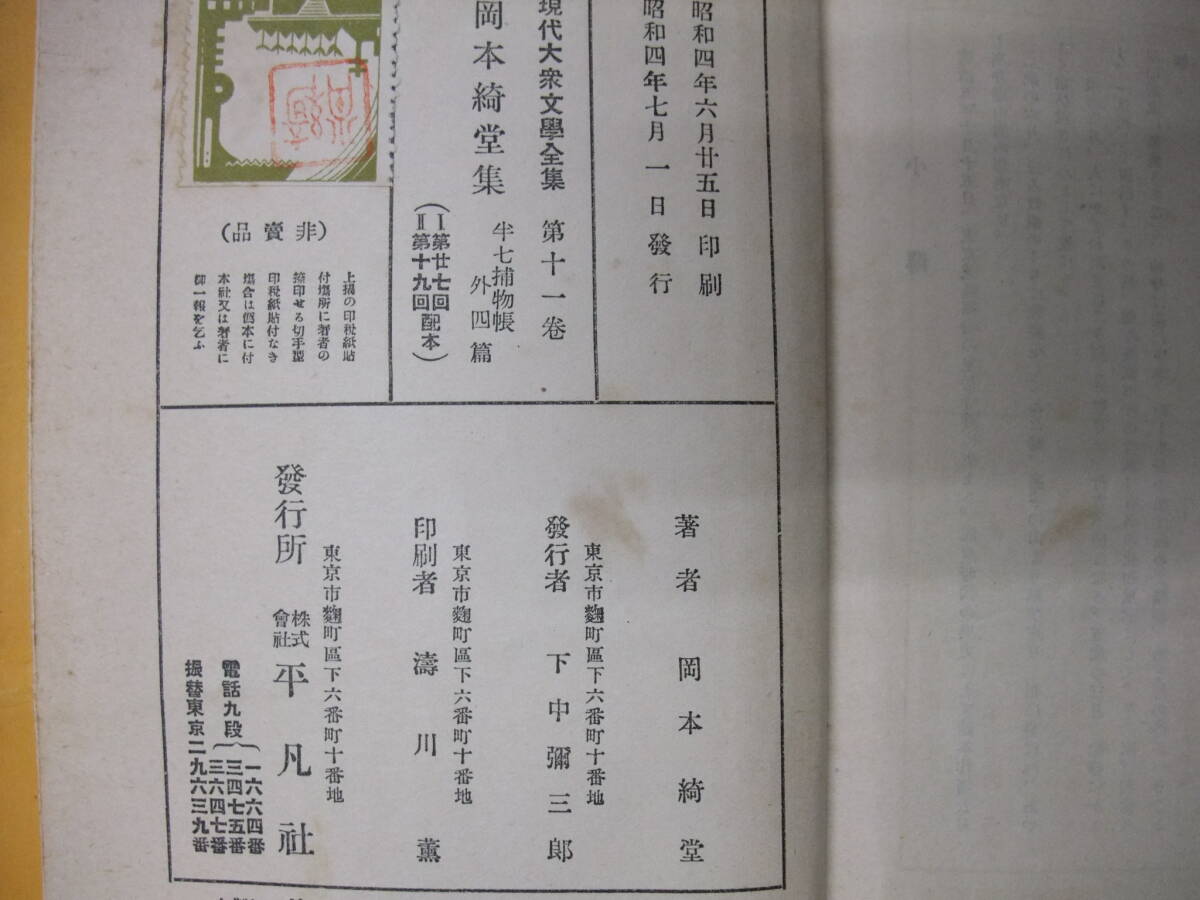 昭和四年六月廿五日印刷
昭和四年七月一日發行
現代大衆文學全集 第十一卷
岡本綺堂集 半七捕物帳
外四篇
(Ⅰ第廿七回
Ⅱ第十九回配本)
(非賣品)
上掲の印税紙貼
付塲所に著者の
捺印せる切手型
印税紙貼付なき
塲合は僞本に付
本社又は著者に
御一報を乞ふ
著者 岡本綺堂
東京市麴町區下六番町十番地
發行者 下中彌三郎
東京市麴町區下六番町十番地
印刷者 濤川薰
東京市麴町區下六番町十番地
發行所 株式會社 平凡社
電話九段 一六六四番
三四七五番
三六四七番
振替東京二九六三九番